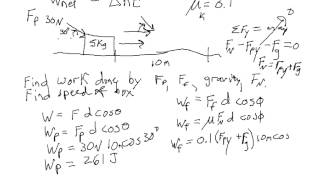 Wnet = ΔKE
μk = 0.1
Fp 30N
30°
5kg
10m
ΣFy = may = 0
FN - Fpy - Fg = 0
FN = Fpy + Fg
Find work done by Fp, Ff, gravity, FN.
Find speed of box
W = F d cosθ
Wp = Fp d cosθ
Wp = 30N 10m cos 30°
Wp = 261 J
Wf = Ff d cosϕ
Wf = μ FN d cosϕ
Wf = 0.1 (Fpy + Fg) 10m cos